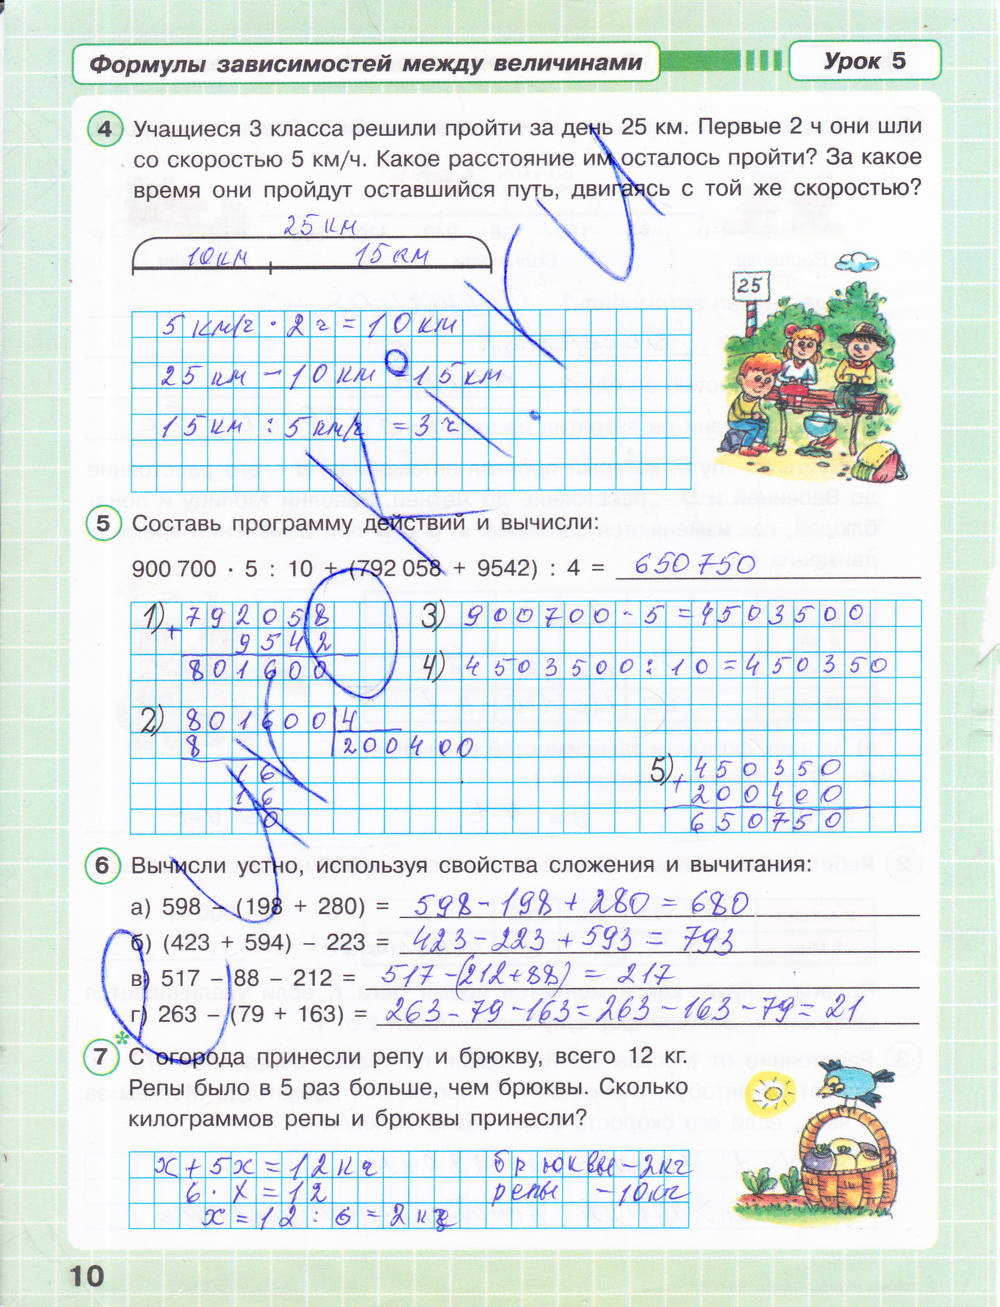 Формулы зависимостей между величинами
Урок 5
4 Учащиеся 3 класса решили пройти за день 25 км. Первые 2 ч они шли
со скоростью 5 км/ч. Какое расстояние им осталось пройти? За какое
время они пройдут оставшийся путь, двигаясь с той же скоростью?
25 км
10 км 15 км
25
5 км/ч · 2 ч = 10 км
25 км – 10 км = 15 км
15 км : 5 км/ч = 3 ч
5 Составь программу действий и вычисли:
900 700 · 5 : 10 + (792 058 + 9542) : 4 = 650750
1) 792058 3) 900700 · 5 = 4503500
+ 9542
801600 4) 4503500 : 10 = 450350
2) 801600 4
8 200400
16 5) 450350
16 + 200400
0 650750
6 Вычисли устно, используя свойства сложения и вычитания:
а) 598 – (198 + 280) = 598 – 198 + 280 = 680
б) (423 + 594) – 223 = 423 – 223 + 593 = 793
в) 517 – 88 – 212 = 517 – (212 + 88) = 217
г) 263 – (79 + 163) = 263 – 79 – 163 = 263 – 163 – 79 = 21
7* С огорода принесли репу и брюкву, всего 12 кг.
Репы было в 5 раз больше, чем брюквы. Сколько
килограммов репы и брюквы принесли?
х + 5х = 12 кг брюквы – 2 кг
6 · х = 12 репы – 10 кг
х = 12 : 6 = 2 кг
10